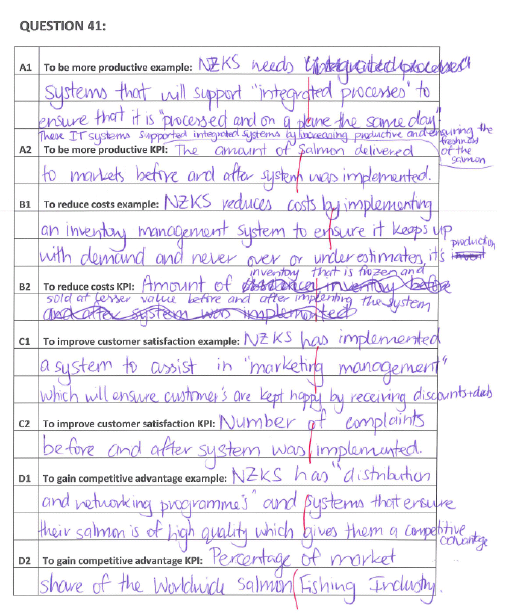 QUESTION 41:
A1 To be more productive example: NZKS needs
systems that will support "integrated processes" to
ensure that it is "processed and on a plane the same day."
These IT systems supported integrated systems by increasing productive and ensuring the
freshness
of the
salmon
A2 To be more productive KPI: The amount of Salmon delivered
to markets before and after system was implemented.
B1 To reduce costs example: NZKS reduces costs by implementing
an inventory management system to ensure it keeps up
with demand and never over or underestimates, it's production
B2 To reduce costs KPI: Amount of inventory that is frozen and
sold at lesser value before and after implenting the system
C1 To improve customer satisfaction example: NZKS has implemented
a system to assist in "marketing management"
which will ensure customer's are kept happy by receiving discounts + deals
C2 To improve customer satisfaction KPI: Number of complaints
before and after system was implemented.
D1 To gain competitive advantage example: NZKS has "distribution
and networking programme's" and systems that ensure
their salmon is of high quality which gives them a competitive
advantage
D2 To gain competitive advantage KPI: Percentage of market
share of the Worldwide Salmon Fishing Industry.